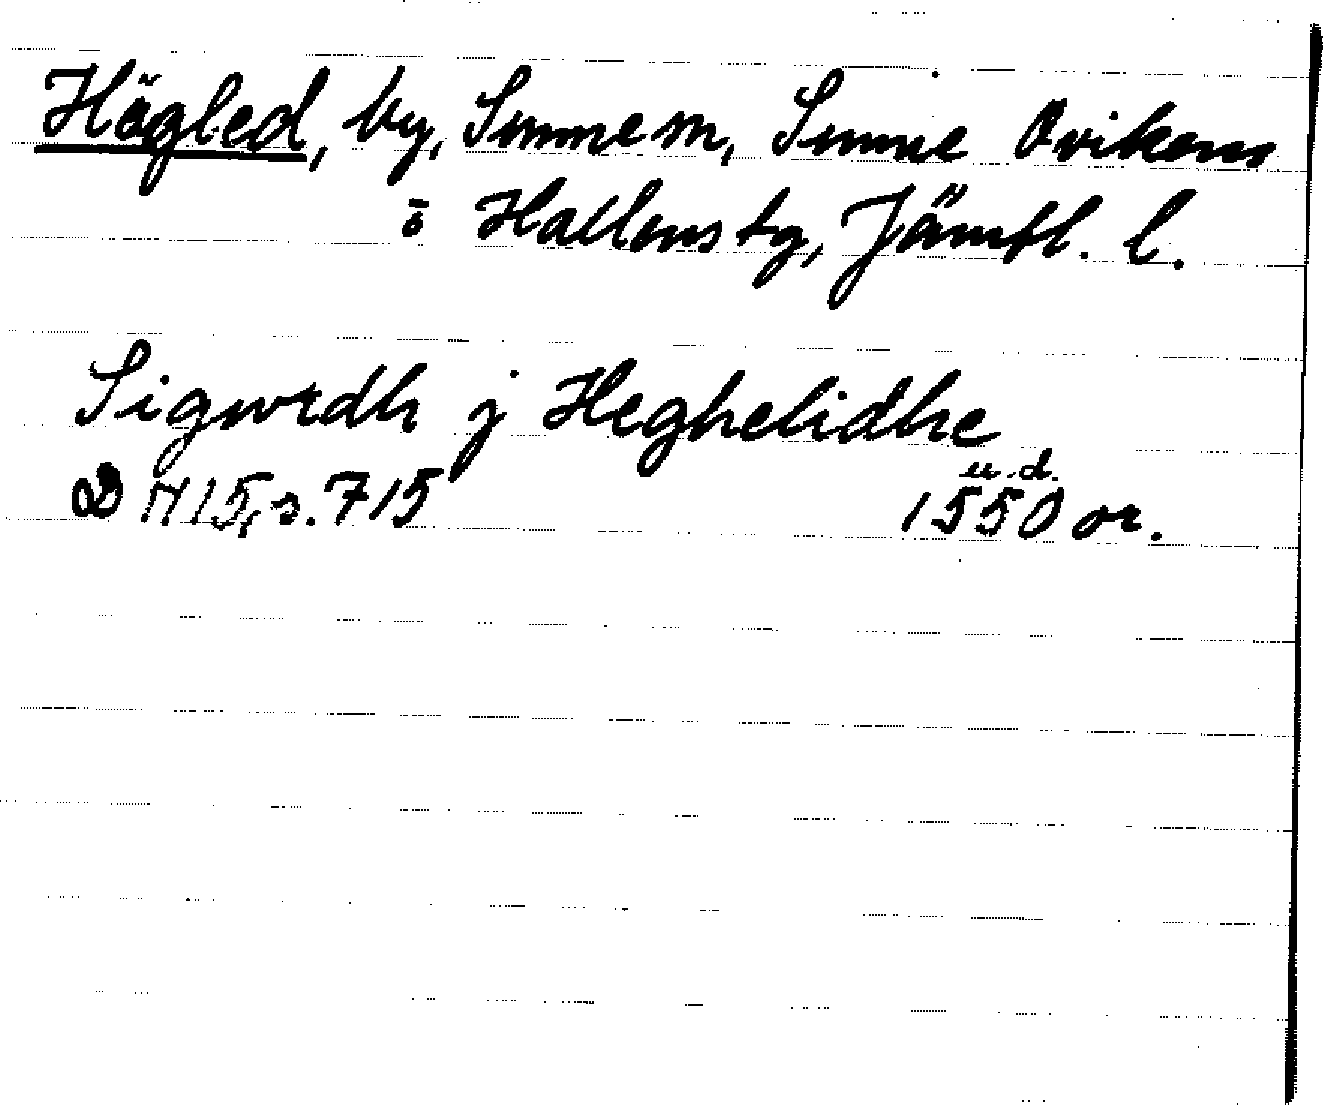 Högled, by, Sunne sn, Sunne Ovikens
o Hallens tg, Jämtl. l.
Sigwrdh j Heghelidhe
u.d.
D 1715, s. 715 1550 or.